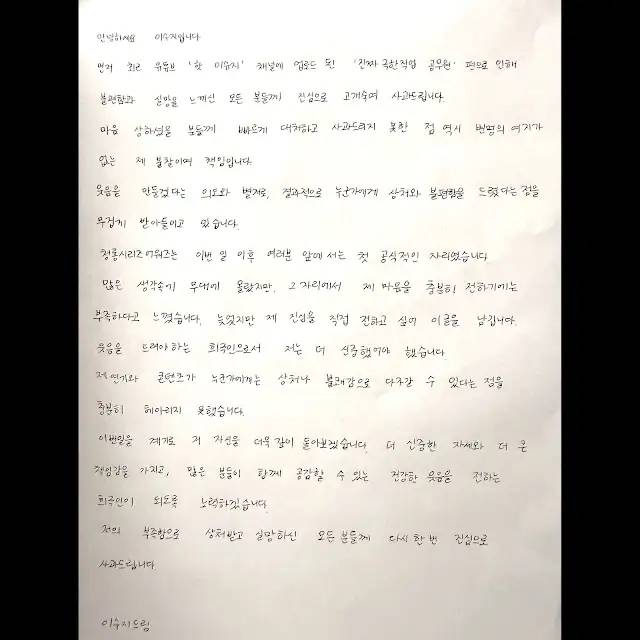 안녕하세요 이수지입니다
먼저 최근 유튜브 '핫이슈지' 채널에 업로드 된 '진짜 극한직업 공무원' 편으로 인해
불편함과 실망을 느끼신 모든 분들께 진심으로 고개숙여 사과드립니다.
마음 상하셨을 분들께 빠르게 대처하고 사과드리지 못한 점 역시 변명의 여지가
없는 제 불찰이며 책임입니다.
웃음을 만들겠다는 의도와 별개로, 결과적으로 누군가에게 상처와 불편함을 드렸다는 점을
무겁게 받아들이고 있습니다.
청룡시리즈어워즈는 이번 일 이후 여러분 앞에 서는 첫 공식적인 자리였습니다
많은 생각속에 무대에 올랐지만, 그 자리에서 제 마음을 충분히 전하기에는
부족하다고 느꼈습니다. 늦었지만 제 진심을 직접 전하고 싶어 이글을 남깁니다.
웃음을 드려야 하는 희극인으로서 저는 더 신중했어야 했습니다
제 연기와 콘텐츠가 누군가에게는 상처나 불쾌감으로 다가갈 수 있다는 점을
충분히 헤아리지 못했습니다.
이번일을 계기로 저 자신을 더욱 깊이 돌아보겠습니다. 더 신중한 자세와 더 큰
책임감을 가지고, 많은 분들이 함께 공감할 수 있는 건강한 웃음을 전하는
희극인이 되도록 노력하겠습니다.
저의 부족함으로 상처받고 실망하신 모든 분들께 다시 한 번 진심으로
사과드립니다.
이수지드림